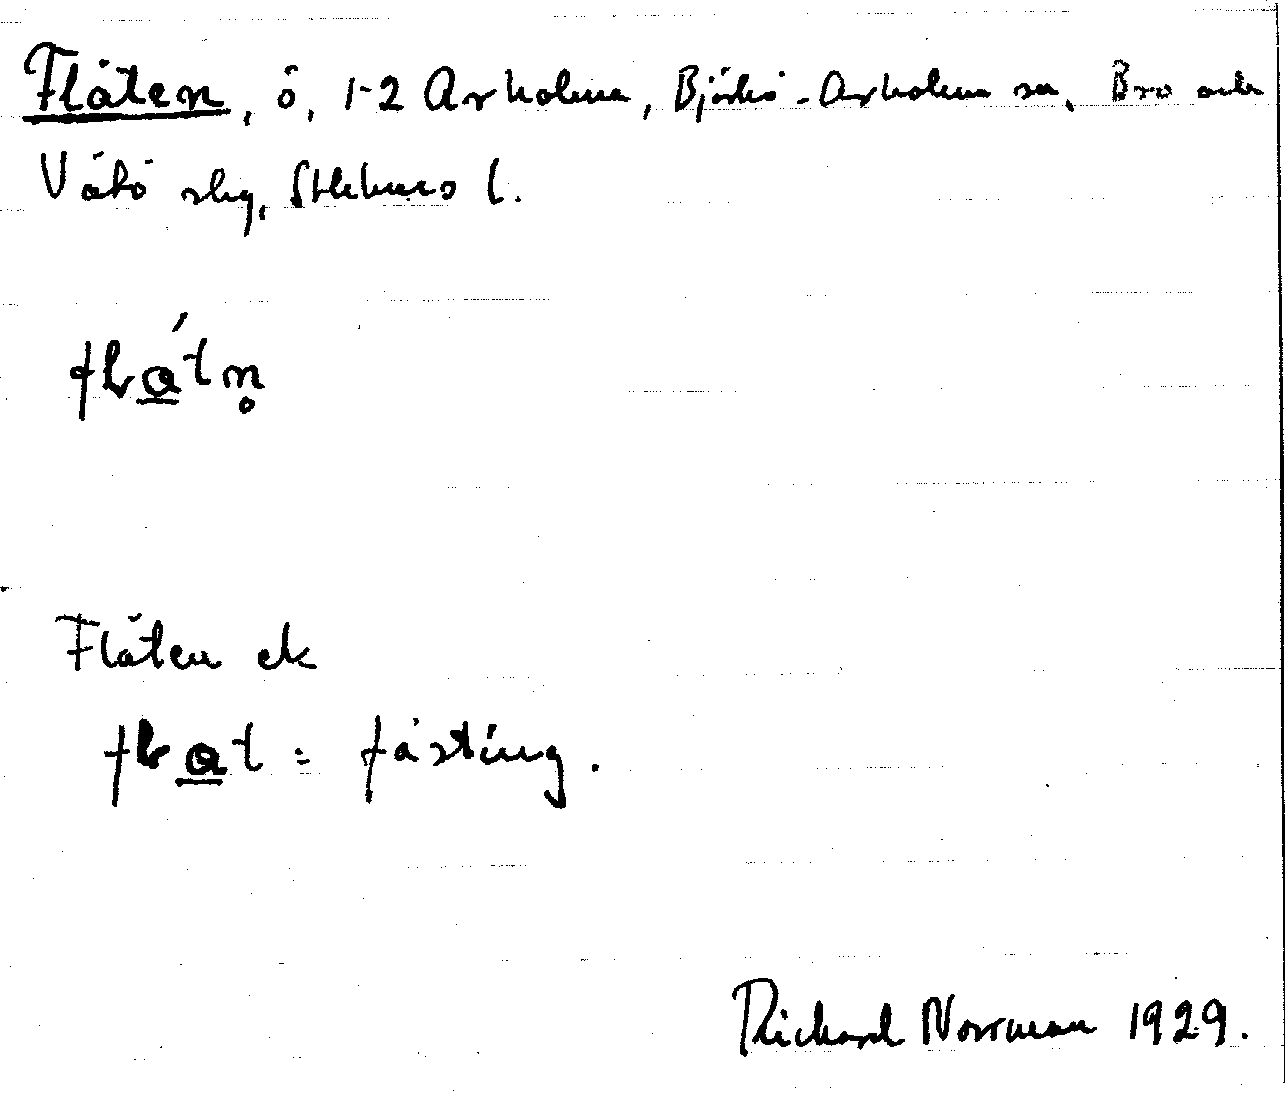 Flåten, ö, 1-2 Arholma, Björkö-Arholma sn, Bro och
Vätö skg, Sthlms l.
flátn̥
Flåten ek
flat = fästing.
Richard Norrman 1929.